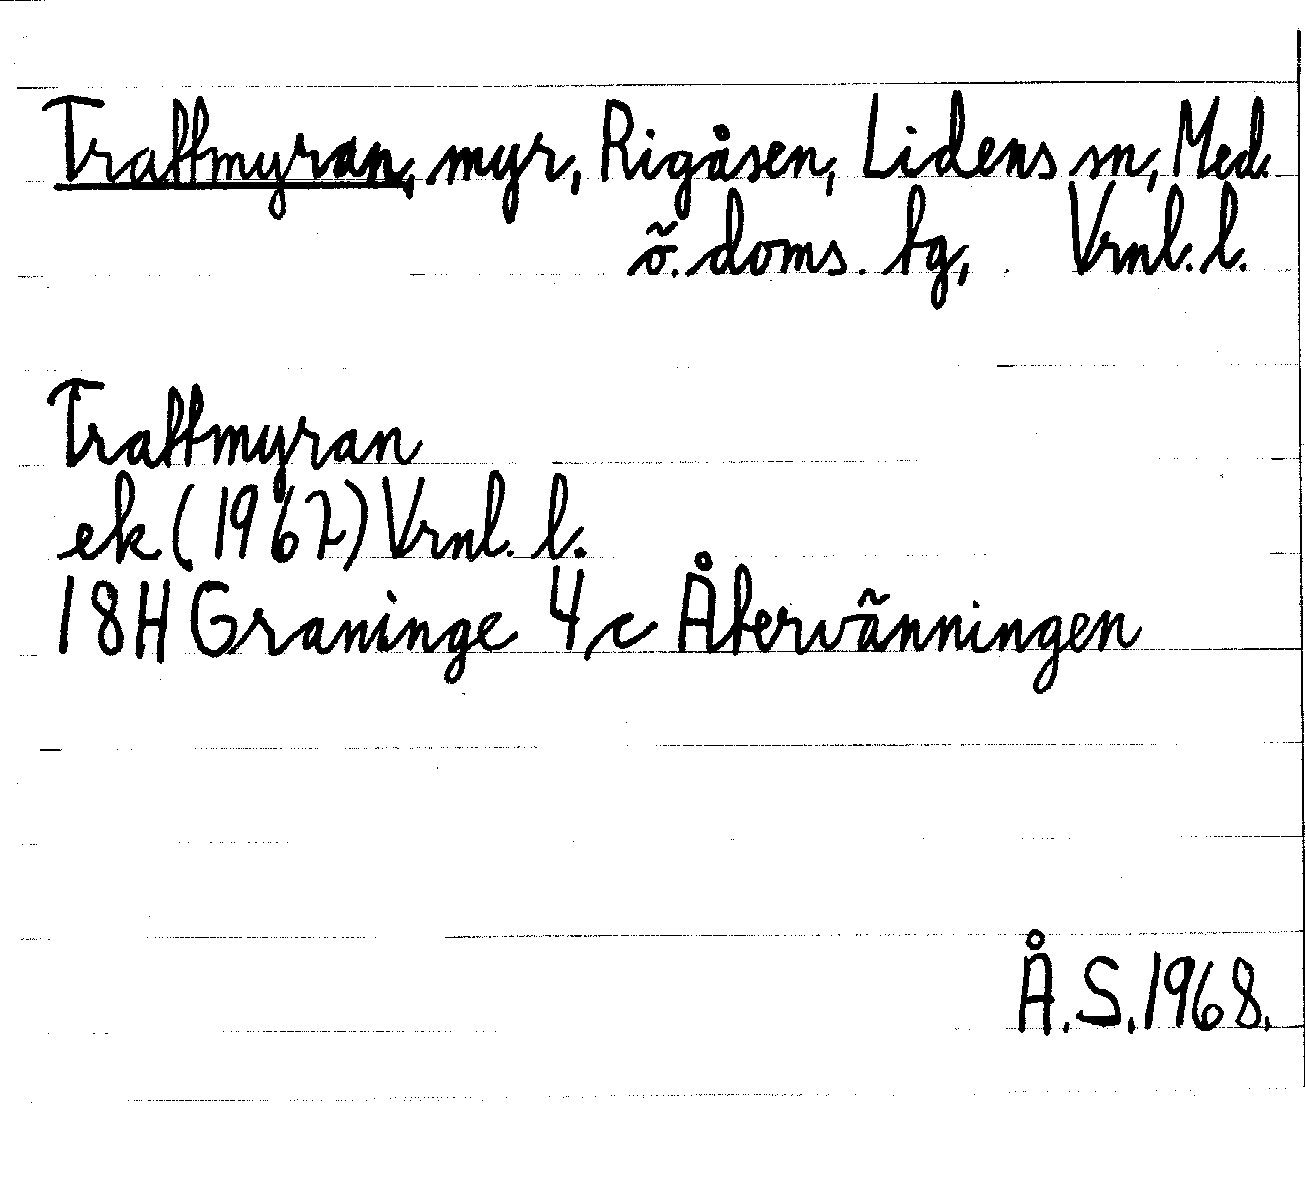 Trattmyran, myr, Rigåsen, Lidens sn, Med.
ö. doms. tg, Vrnl. l.
Trattmyran
ek (1967) Vrnl. l.
18H Graninge 4 c Återvänningen
Å.S. 1968.